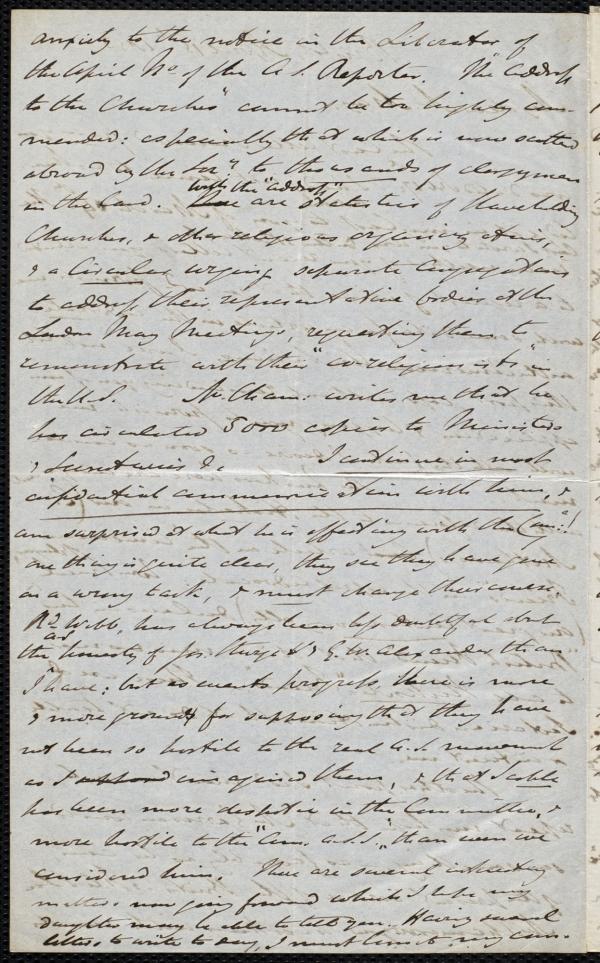 anxiety to the notice in the Liberator of
the April No of the A. S. Reporter. The "address
to the Churches" cannot be too highly com-
mended: especially that which is now scattered
abroad by the to thousands of clergymen
with the "address,"
in the land. are statistics of Slaveholding
Churches, & other religious organizations,
& a Circular urging separate Congregations
to address their representative bodies at the
London May Meetings, requesting them to
remonstrate with their "co-religionists" in
the U.S. Mr. Cham: writes me that he
has circulated 5000 copies to Ministers
& Secretaries &c I continue in most
confidential communication with him, &
am surprised at what he is effecting with the Com:!
one thing is quite clear, they see they have gone
on a wrong tack, & must change their course.
Rd Webb, has always been less doubtful about
as
the honesty of Jos. Sturge & G. W. Alexander than
I have; but as events progress, there is more
& more ground for supposing that they have
not been so hostile to the real A. S. movement
as I imagined them, & that Scoble
has been more despotic in the Committee, &
more hostile to the "Am. A.S.S." than even we
considered him. There are several interesting
matters now going forward which I hope my
daughter may be able to tell you. Having several
letters to write to day, I must limit my com-